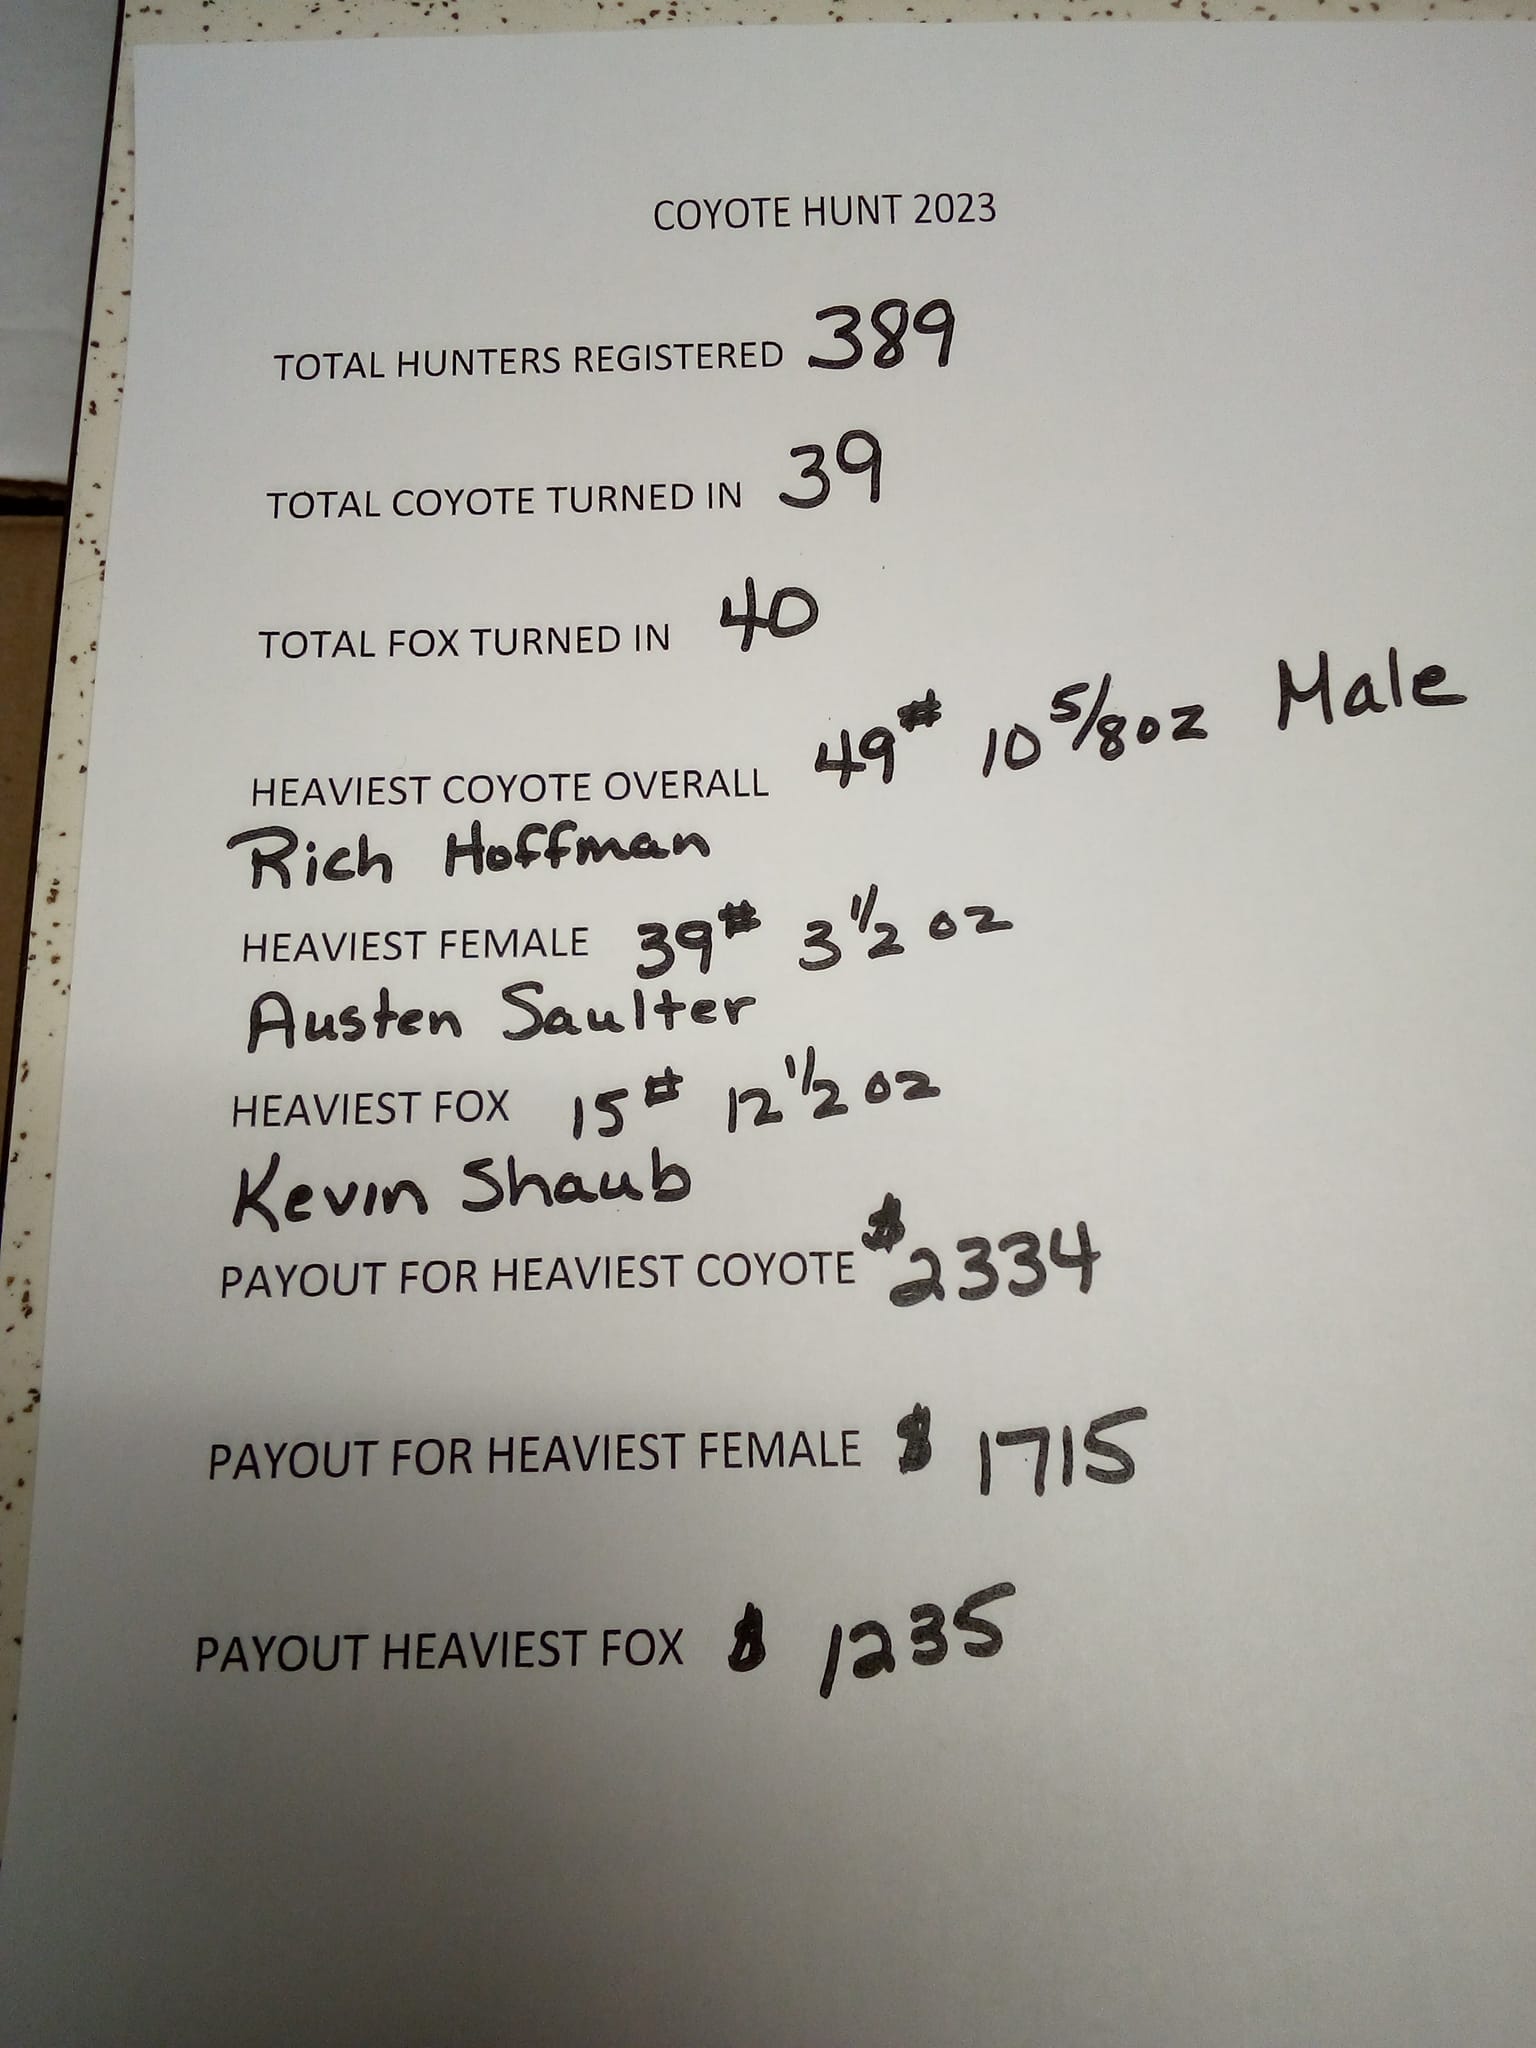 COYOTE HUNT 2023
TOTAL HUNTERS REGISTERED 389
TOTAL COYOTE TURNED IN 39
TOTAL FOX TURNED IN 40
HEAVIEST COYOTE OVERALL 49# 10 5/8 oz Male
Rich Hoffman
HEAVIEST FEMALE 39# 3 1/2 oz
Austen Saulter
HEAVIEST FOX 15# 12 1/2 oz
Kevin Shaub
PAYOUT FOR HEAVIEST COYOTE $2334
PAYOUT FOR HEAVIEST FEMALE $ 1715
PAYOUT HEAVIEST FOX $ 1235